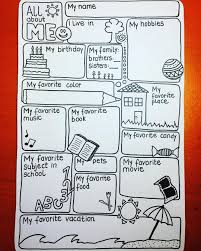 All about ME
My name
I live in
My hobbies
My birthday
My family:
brothers-
sisters-
My favorite color
My favorite
place
My favorite
music
My favorite
book
My favorite candy
My favorite
subject in
school
My pets
My favorite
food
My favorite
movie
1 2 3
My favorite vacation